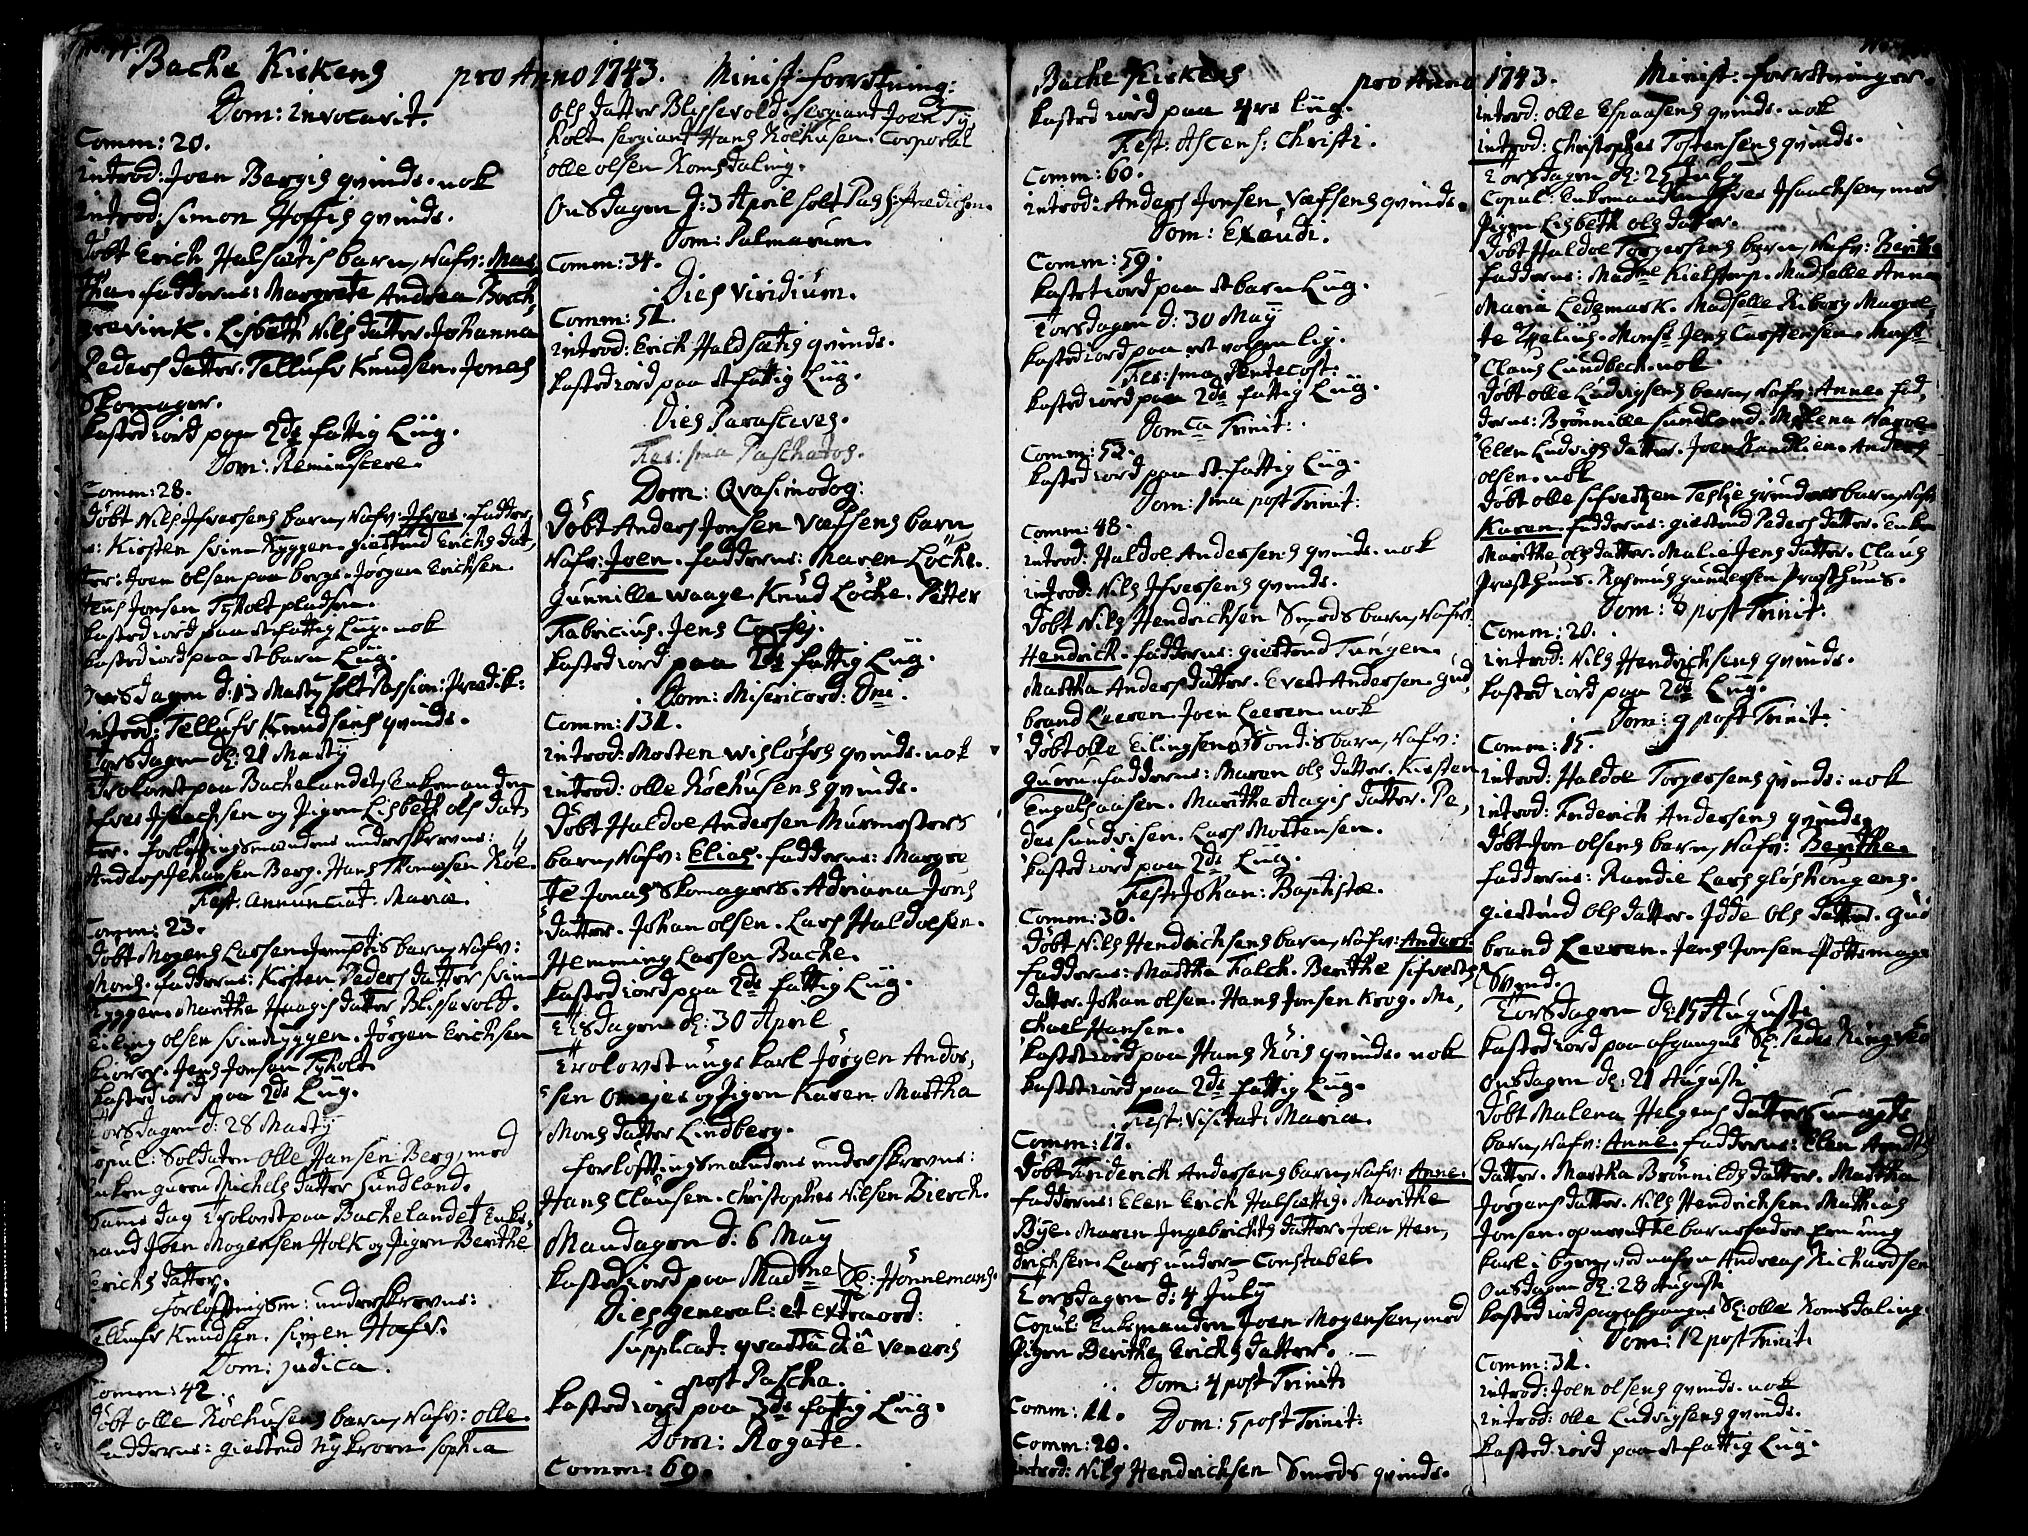 Bache Kirkens pro Anno 1743. Minist: forretning:
Dom: Invocavit.
Comm: 20.
introd: Joen Bergis qvinde. nok
introd: Simon Hoffis qvinde.
Døbt Erich Halsætis barn, Nafn: Mar
tha. fadderne: Margrete Andrea Borch
grevink. Lisbeth Nils datter. Johanna
Peders datter. Tellufr Knudsen. Jonas
Skomager.
kasted iord paa 2de fattig Liig.
Dom: Reminiscere.
Comm: 28.
Døbt Nils Ifversens barn, Nafn: Ifver. fadder,
ne: Kirsten Svin Ryggen. giertrud Erichs dat,
ter. Joen Olsen paa berge. Jørgen Erichsen
Jens Jonsen Tyholt pladsen.
kasted iord paa et fattig Liig. nok
kasted iord paa et barn Liig.
Onsdagen d: 13 Marty holt Passion: Prædik:
introd: Tellufr Knudsens qvinde.
Torsdagen d: 21 Marty
Trolovet paa Bachelandet, Enkemanden
Ifver Isachsen og Pigen Lisbeth Ols dat,
ter. forlofftingsmændene underskrevne:
Anders Johansen Berg. Hans Thomesen Roe.
Fest: Annunciat: Mariæ.
Comm: 23.
Døbt Mogens Larsen Jemptis barn, Nafn:
Mons. fadderne: Kirsten Peders datter Svin
Ryggen. Marithe Haagis datter Blissevolt.
Eiling olsen Svinryggen. Jørgen Erichsen
Jens Jonsen Tyholt
kasted iord paa 2de Liig.
Torsdagen d: 28 Marty
Copul: Soldaten Olle Hansen Berg, med
Enken guren Michels datter Sundland.
Samme dag Trolovet paa Bachelandet Enke,
mand Joen Mogensen Holk og Pigen Berithe
Erichs datter.
forlofftingsm: underskrevne:
Tellufr Knudsen. Simen Hoff.
Dom: Judica.
Comm: 42.
Døbt olle Røehusens barn, Nafn: olle.
fadderne: giertrud Nykroen. Sophia
Ols datter Blissevold. Sergiant Joen Ty,
holt. Sergiant Hans Roehusen. Corporal
olle olsen Romsdaling.
Onsdagen d: 3 April holt Pass: Prædichen.
Dom: Palmarum.
Comm: 34.
Dies Viridium.
Comm: 51.
introd: Erich Haldsætis qvinde.
kasted iord paa et fattig Liig.
Dies Parasceves.
Fer: 1ma Paschatos.
Dom: Qvasimodog:
Døbt Anders Jonsen Væfsens barn
Nafn: Joen. fadderne: Maren Løche.
Gunnille Waage. Knud Løcke. Petter
Fabricius. Jens
kasted iord paa 2de fattig Liig.
Dom: Misericord: Dni.
Comm: 131.
introd: Morten Wisløfrs qvinde. nok
introd: olle Røehusens qvinde.
Døbt Haldoe Andersen Murmesters
barn, Nafn: Elias. fadderne: Margre,
te Jonas Skomagers. Adriana Jons
datter. Johan olsen. Lars Haldoesen.
Hemming Larsen Bache.
kasted iord paa 2de fattig Liig.
Tirsdagen d: 30 April
Trolovet unge karl Jørgen Ander,
sen og Pigen Karen Martha
Mons datter Lindberg.
forlofftingsmændene underskrevne:
Hans Clausen. Christopher Nilsen Bierch.
Mandagen d: 6 May
kasted iord paa Madme Sl: Hønnemans.
Dies general: et extraord:
supplicat: qvarta die Veneris
post Pascha.
kasted iord paa 3de fattig Liig.
Dom: Rogate.
Comm: 69.
Bache Kirkens pro Anno 1743. Minist: forretninger.
kasted iord paa 4re Liig.
Fest: Ascens: Christi.
Comm: 60.
introd: Anders Jonsen Væfsens qvinde.
Dom: Exaudi.
Comm: 59.
kasted iord paa et barn Liig.
Torsdagen d: 30 May
kasted iord paa et voxen lig.
Fer: 1ma Pentecost:
kasted iord paa 2de fattig Liig.
Domca Trinit:
Comm: 52.
kasted iord paa et fattig Liig.
Dom: 1ma post Trinit:
Comm: 48.
introd: Haldoe Andersens qvinde. nok
introd: Nils Ifversens qvinde.
Døbt Nils Hendrichsen Smeds barn, Nafn:
Hendrich. fadderne: giertrud Tungen.
Martha Anders datter. Evert Andersen. Gud,
brand Leeren. Joen Leeren. nok
Døbt olle Eilingsen barn, Nafn:
guren. fadderne: Maren ols datter. Kirsten
Engelsaasen. Marithe Aagis datter. Pe,
der Sundrisen. Lars Mortensen.
kasted iord paa 2de Liig.
Fest: Johan: Baptistæ.
Comm: 30.
Døbt Nils Hendrichsens barn, Nafn: Anders.
fadderne: Martha Falch. Berithe Sifverts
datter. Johan olsen. Hans Jonsen Krog. Mi,
chael Hansen.
kasted iord paa Hans Røis qvinde. nok
kasted iord paa 2de fattig Liig.
Fest: Visitat: Mariæ.
Comm: 17.
Døbt Friderich Andersens barn, Nafn: Anne.
fadderne: Elen Erich Halsættis. Marithe
Bye. Maren Ingebrichts datter. Joen Hen,
drichsen. Lars under Constabel.
Torsdagen d: 4 July
Copul: Enkemanden Joen Mogensen, med
Pigen Berithe Erichs datter.
Dom: 4 post Trinit:
Comm: 11. Dom: 5 post Trinit:
Comm: 20.
introd: Nils Hendrichsen Smeds qvinde.
introd: olle Espaasens qvinde. nok
introd: Christopher Tostensens qvinde.
Torsdagen d: 25 July
Copul: Enkemanden Ifver Isaachsen, med
Pigen Lisbeth ols datter.
Døbt Haldoe Torgersens barn, Nafn: Berithe
fadderne: Madme Kielstrup. Madselle Anna
Maria Ledemark. Madselle Riborg Margre,
te Monsr Jens Carstensen. Monsr
Claus Lundbech. nok
Døbt olle Ludvigsens barn, Nafn: Anne. fad,
derne: Brønnille Sundland. Malena
Elen Ludvigs datter. Joen Anders
olsen. nok
Døbt olle Sifvertsen Teslie grindens barn, Nafn
Karen. fadderne: giertrud Peders datter. Enken
Marithe ols datter. Malie Jens datter. Claus
Præsthuus. Rasmus gundersen Præsthuus.
Dom: 8 post Trinit:
Comm: 20.
introd: Nils Hendrichsens qvinde.
kasted iord paa 2de Liig.
Dom: 9 post Trinit:
Comm: 15.
introd: Haldoe Torgersens qvinde. nok
introd: Friderich Andersens qvinde.
Døbt Jon olsens barn, Nafn: Berithe.
fadderne: Randie Lars
giertrud Ols datter. Idde Ols datter. Gud
brand Leeren. Jens Jonsen Pottemager
Svend.
Torsdagen d: 15 Augusti
kasted iord paa afgangne Sl: Peder Ringved
Onsdagen d: 21 Augusti
Døbt Malena Helgens datters uægte
barn, Nafn: Anne. fadderne: Elen Arndts
datter. Martha Brønnilds datter. Martha
Jørgens datter. Nils Hendrichsen. Mathias
Jonsen. opnevnte barnefader Een ung
karl i Byen, ved nafn Andreas Richardsen
Onsdagen d: 28 Augusti
kasted iord paa afgangne Sl: olle Romsdaling
Dom: 12 post Trinit:
Comm: 31.
introd: Joen olsens qvinde. nok
introd: olle Ludvigsens qvinde.
kasted iord paa et fattig Liig.